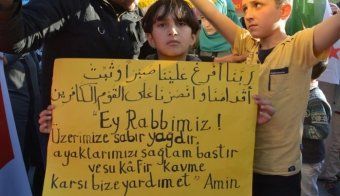 ربنا افرغ علينا صبرا و ثبت
أقدامنا و انصرنا على القوم الكافرين
"Ey Rabbimiz!
Üzerimize sabır yağdır,
ayaklarımızı sağlam bastır
ve su kâfir kavme
karsı bize yardım et" Amin